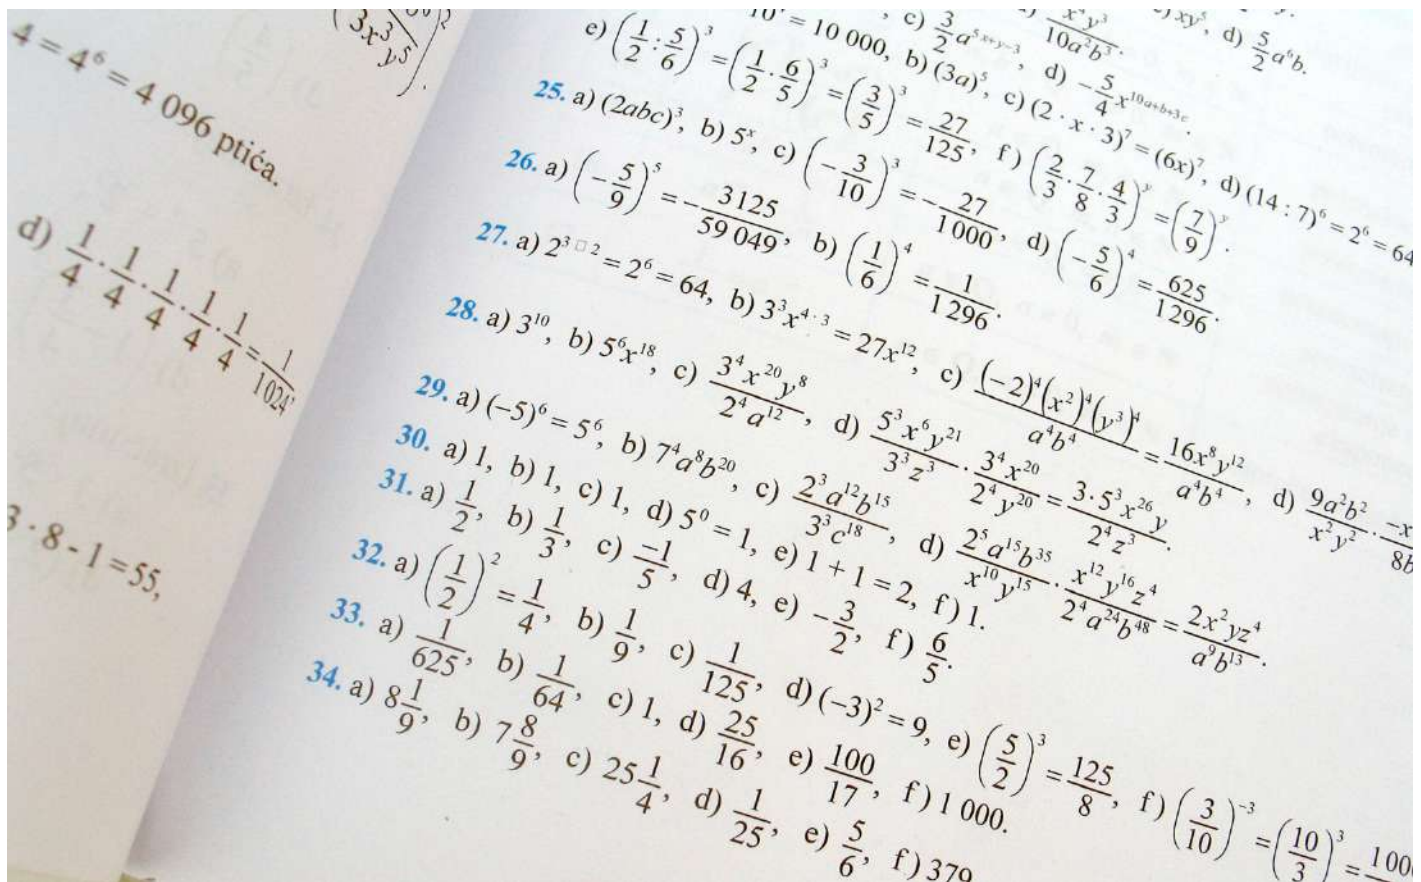 4 = 4⁶ = 4 096 ptića.
d) 1/4 · 1/4 · 1/4 · 1/4 · 1/4 = 1/1024.
3 · 8 - 1 = 55,
c) 3/2 a⁵ˣ⁺ʸ⁻³, d) -5/4 x¹⁰ᵃ⁺ᵇ⁺³ᶜ.
= 10 000, b) (3a)⁵, c) (2 · x · 3)⁷ = (6x)⁷, d) (14 : 7)⁶ = 2⁶ = 64
e) (1/2 : 5/6)³ = (1/2 · 6/5)³ = (3/5)³ = 27/125, f) (2/3 · 7/8 · 4/3)ʸ = (7/9)ʸ.
25. a) (2abc)³, b) 5ˣ, c) (-3/10)³ = -27/1000, d) (-5/6)⁴ = 625/1296.
26. a) (-5/9)⁵ = -3125/59 049, b) (1/6)⁴ = 1/1296.
27. a) 2³ □ ² = 2⁶ = 64, b) 3³x⁴ · ³ = 27x¹², c) (-2)⁴(x²)⁴(y³)⁴/a⁴b⁴ = 16x⁸y¹²/a⁴b⁴, d) 9a²b²/x²y² ·
28. a) 3¹⁰, b) 5⁶x¹⁸, c) 3⁴x²⁰y⁸/2⁴a¹², d) 5³x⁶y²¹/3³z³ · 3⁴x²⁰/2⁴y²⁰ = 3·5³x²⁶y/2⁴z³.
29. a) (-5)⁶ = 5⁶, b) 7⁴a⁸b²⁰, c) 2³a¹²b¹⁵/3³c¹⁸, d) 2⁵a¹⁵b³⁵/x¹⁰y¹⁵ · x¹²y¹⁶z⁴/2⁴a²⁴b⁴⁸ = 2x²yz⁴/a⁹b¹³.
30. a) 1, b) 1, c) 1, d) 5⁰ = 1, e) 1 + 1 = 2, f) 1.
31. a) 1/2, b) 1/3, c) -1/5, d) 4, e) -3/2, f) 6/5.
32. a) (1/2)² = 1/4, b) 1/9, c) 1/125, d) (-3)² = 9, e) (5/2)³ = 125/8, f) (3/10)⁻³ = (10/3)³ =
33. a) 1/625, b) 1/64, c) 1, d) 25/16, e) 100/17, f) 1 000.
34. a) 8 1/9, b) 7 8/9, c) 25 1/4, d) 1/25, e) 5/6, f) 379